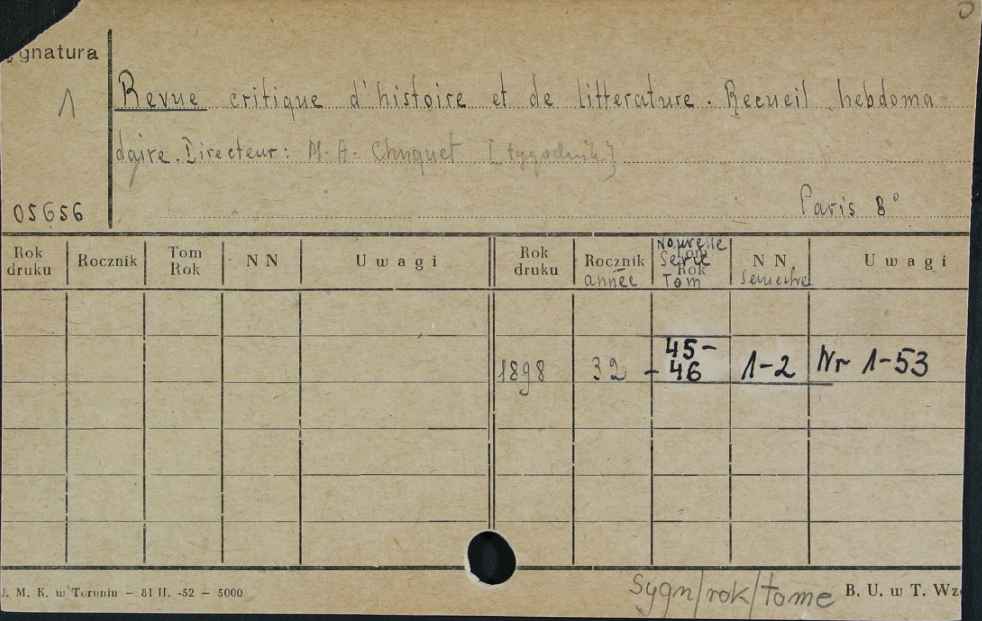 ygnatura
1
Revue critique d'histoire et de litterature. Recueil hebdoma-
daire. Directeur: M. A. Chuquet [tygodnik]
05656
Paris 8°
Rok druku Rocznik Tom Rok NN Uwagi Rok druku Rocznik année Nouvelle Serie Tom Rok NN Semestre Uwagi
1898 32 45-46 1-2 Nr 1-53
J. M. K. w Toruniu – 81 II. -52 – 5000
Sygn/rok/tome
B. U. w T. Wz